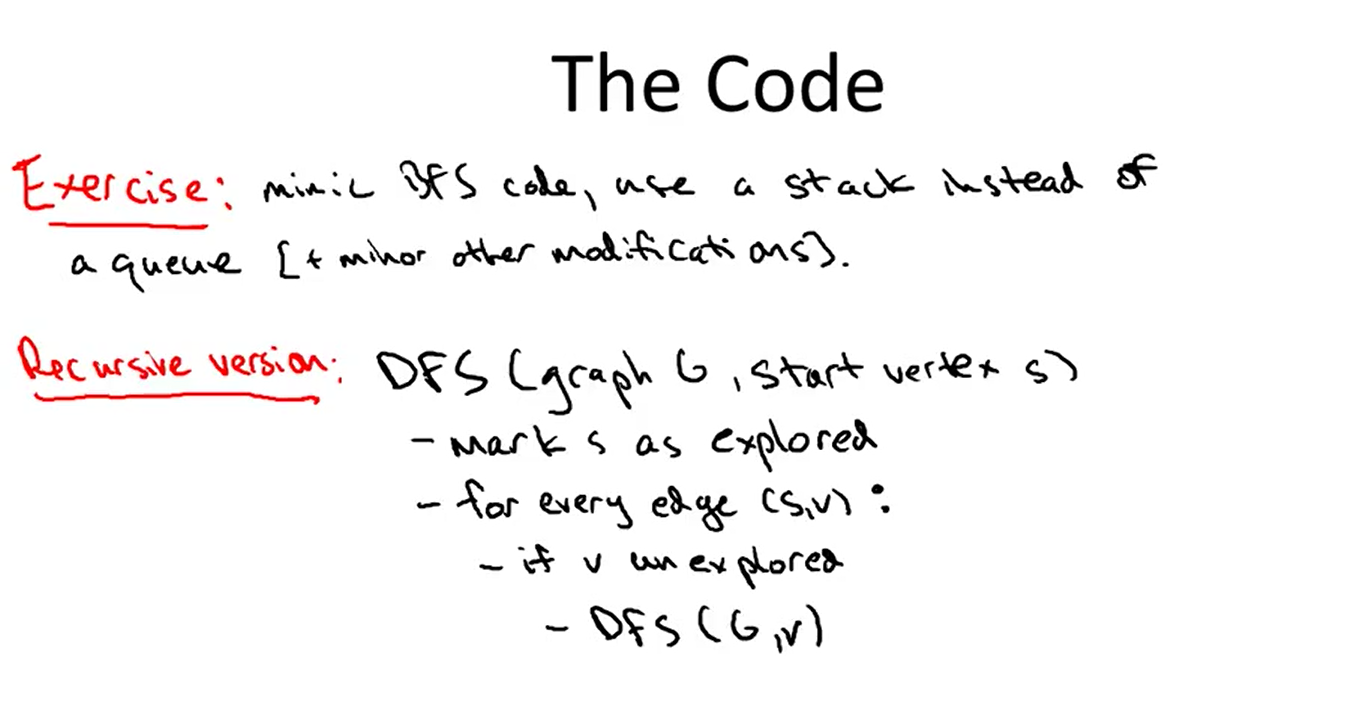 The Code
Exercise: mimic BFS code, use a stack instead of
a queue [+ minor other modifications].
Recursive version: DFS (graph G, start vertex s)
- mark s as explored
- for every edge (s,v) :
- if v unexplored
- DFS (G,v)